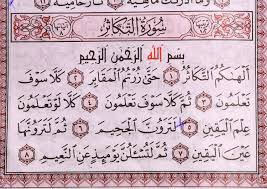 سُورَةُ التَّكَاثُرِ
بِسْمِ اللَّهِ الرَّحْمَٰنِ الرَّحِيمِ
أَلْهَىٰكُمُ التَّكَاثُرُ ١ حَتَّىٰ زُرْتُمُ الْمَقَابِرَ ٢ كَلَّا سَوْفَ
تَعْلَمُونَ ٣ ثُمَّ كَلَّا سَوْفَ تَعْلَمُونَ ٤ كَلَّا لَوْ تَعْلَمُونَ
عِلْمَ الْيَقِينِ ٥ لَتَرَوُنَّ الْجَحِيمَ ٦ ثُمَّ لَتَرَوُنَّهَا
عَيْنَ الْيَقِينِ ٧ ثُمَّ لَتُسْأَلُنَّ يَوْمَئِذٍ عَنِ النَّعِيمِ ٨